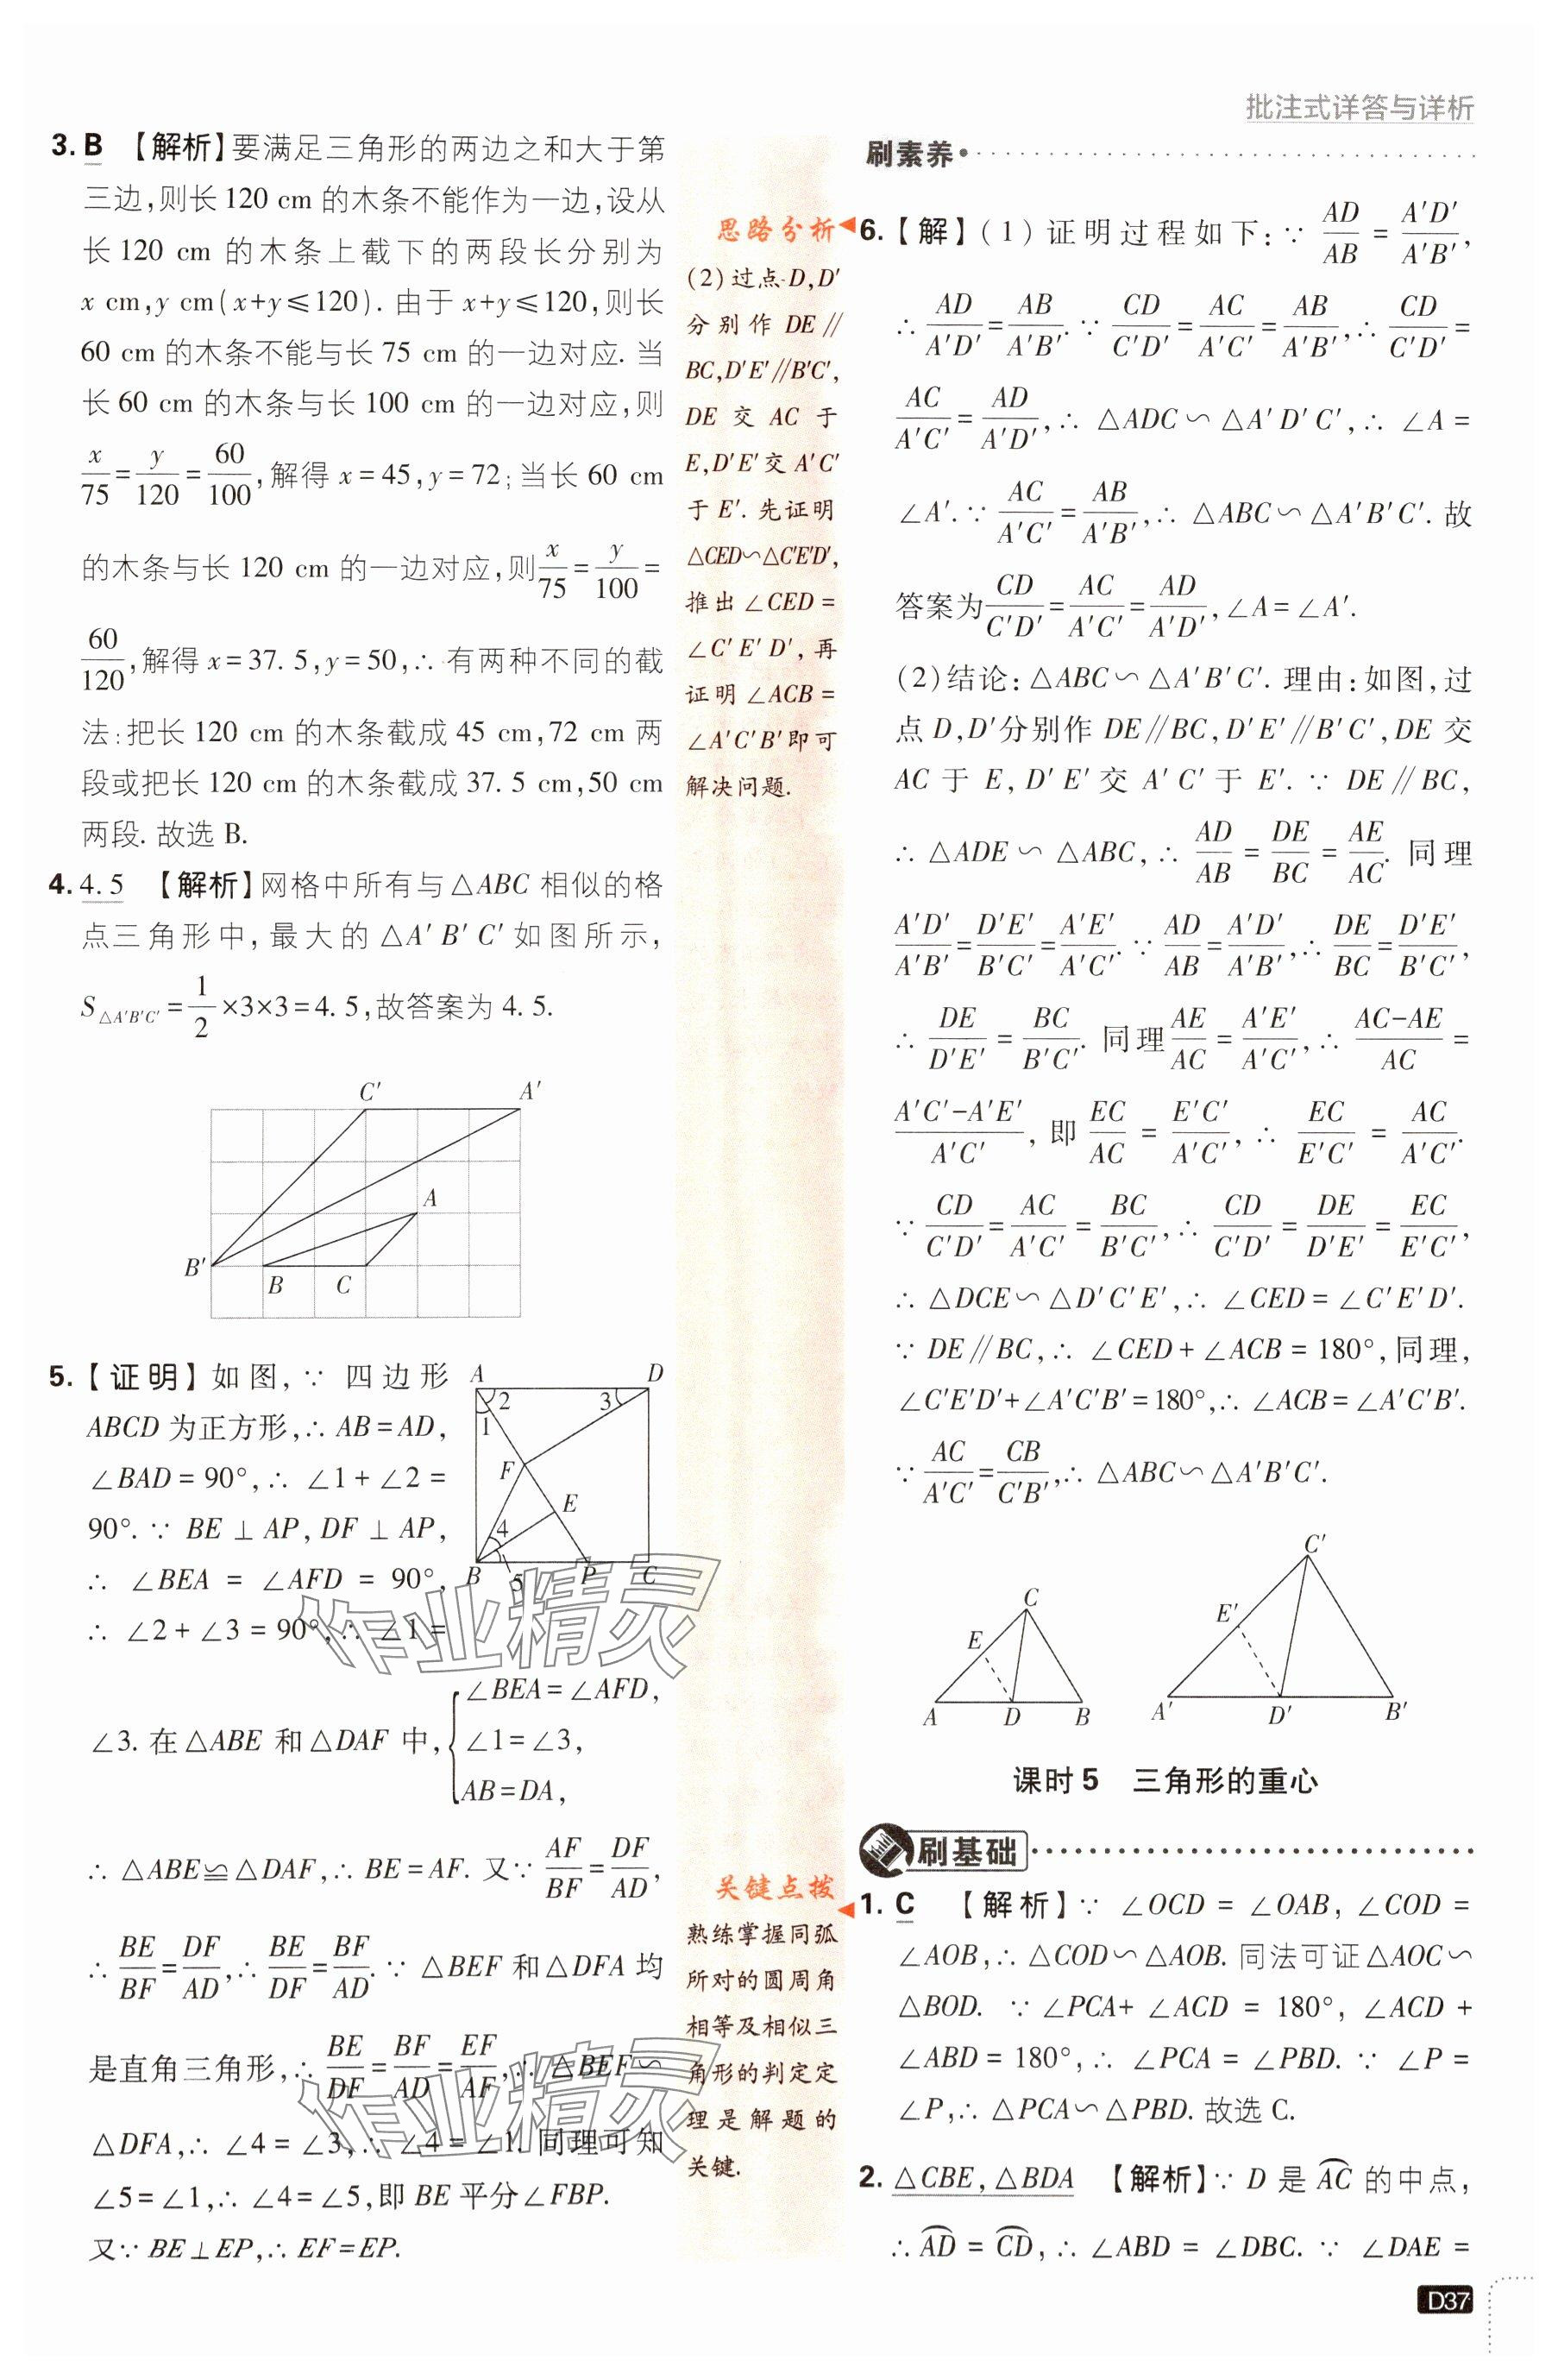 批注式详答与详析
3. B 【解析】要满足三角形的两边之和大于第
三边,则长 120 cm 的木条不能作为一边,设从
长 120 cm 的木条上截下的两段长分别为
x cm,y cm(x+y≤120). 由于 x+y≤120,则长
60 cm 的木条不能与长 75 cm 的一边对应. 当
长 60 cm 的木条与长 100 cm 的一边对应,则
x/75=y/120=60/100,解得 x=45,y=72;当长 60 cm
的木条与长 120 cm 的一边对应,则x/75=y/100=
60/120,解得 x=37. 5,y=50,∴ 有两种不同的截
法:把长 120 cm 的木条截成 45 cm,72 cm 两
段或把长 120 cm 的木条截成 37. 5 cm,50 cm
两段. 故选 B.
4. 4. 5 【解析】网格中所有与△ABC 相似的格
点三角形中,最大的△A′B′C′如图所示,
S△A′B′C′=1/2×3×3=4. 5,故答案为 4. 5.
C′ A′
A
B′ B C
5.【证明】如图,∵ 四边形
ABCD 为正方形,∴ AB=AD,
∠BAD=90°,∴ ∠1+∠2=
90°. ∵ BE⊥AP,DF⊥AP,
∴ ∠BEA=∠AFD=90°,
∴ ∠2+∠3=90°,∴ ∠1=
A D
2 3
1
F
E
4
B 5 P C
∠3. 在△ABE 和△DAF 中,{∠BEA=∠AFD,
∠1=∠3,
AB=DA,
∴ △ABE≌△DAF,∴ BE=AF. 又∵ AF/BF=DF/AD,
∴ BE/BF=DF/AD,∴ BE/DF=BF/AD. ∵ △BEF 和△DFA 均
是直角三角形,∴ BE/DF=BF/AD=EF/AF,∴ △BEF∽
△DFA,∴ ∠4=∠3,∴ ∠4=∠1. 同理可知
∠5=∠1,∴ ∠4=∠5,即 BE 平分∠FBP.
又∵ BE⊥EP,∴ EF=EP.
思路分析
(2)过点 D,D′
分别作 DE∥
BC,D′E′∥B′C′,
DE 交 AC 于
E,D′E′交 A′C′
于 E′. 先证明
△CED∽△C′E′D′,
推出∠CED=
∠C′E′D′,再
证明∠ACB=
∠A′C′B′即可
解决问题.
关键点拨
熟练掌握同弧
所对的圆周角
相等及相似三
角形的判定定
理是解题的
关键.
刷素养
6.【解】(1)证明过程如下:∵ AD/AB=A′D′/A′B′,
∴ AD/A′D′=AB/A′B′. ∵ CD/C′D′=AC/A′C′=AB/A′B′,∴ CD/C′D′=
AC/A′C′=AD/A′D′,∴ △ADC∽△A′D′C′,∴ ∠A=
∠A′. ∵ AC/A′C′=AB/A′B′,∴ △ABC∽△A′B′C′. 故
答案为CD/C′D′=AC/A′C′=AD/A′D′,∠A=∠A′.
(2)结论:△ABC∽△A′B′C′. 理由:如图,过
点 D,D′分别作 DE∥BC,D′E′∥B′C′,DE 交
AC 于 E,D′E′交 A′C′于 E′. ∵ DE∥BC,
∴ △ADE∽△ABC,∴ AD/AB=DE/BC=AE/AC. 同理
A′D′/A′B′=D′E′/B′C′=A′E′/A′C′. ∵ AD/AB=A′D′/A′B′,∴ DE/BC=D′E′/B′C′,
∴ DE/D′E′=BC/B′C′. 同理AE/AC=A′E′/A′C′,∴ AC-AE/AC=
A′C′-A′E′/A′C′,即EC/AC=E′C′/A′C′,∴ EC/E′C′=AC/A′C′.
∵ CD/C′D′=AC/A′C′=BC/B′C′,∴ CD/C′D′=DE/D′E′=EC/E′C′,
∴ △DCE∽△D′C′E′,∴ ∠CED=∠C′E′D′.
∵ DE∥BC,∴ ∠CED+∠ACB=180°,同理,
∠C′E′D′+∠A′C′B′=180°,∴ ∠ACB=∠A′C′B′.
∵ AC/A′C′=CB/C′B′,∴ △ABC∽△A′B′C′.
C C′
E E′
A D B A′ D′ B′
课时 5 三角形的重心
刷基础
1. C 【解析】∵ ∠OCD=∠OAB,∠COD=
∠AOB,∴ △COD∽△AOB. 同法可证△AOC∽
△BOD. ∵ ∠PCA+∠ACD=180°,∠ACD+
∠ABD=180°,∴ ∠PCA=∠PBD. ∵ ∠P=
∠P,∴ △PCA∽△PBD. 故选 C.
2. △CBE,△BDA 【解析】∵ D 是 A͡C 的中点,
∴ A͡D=C͡D,∴ ∠ABD=∠DBC. ∵ ∠DAE=
D37
作业精灵
作业精灵